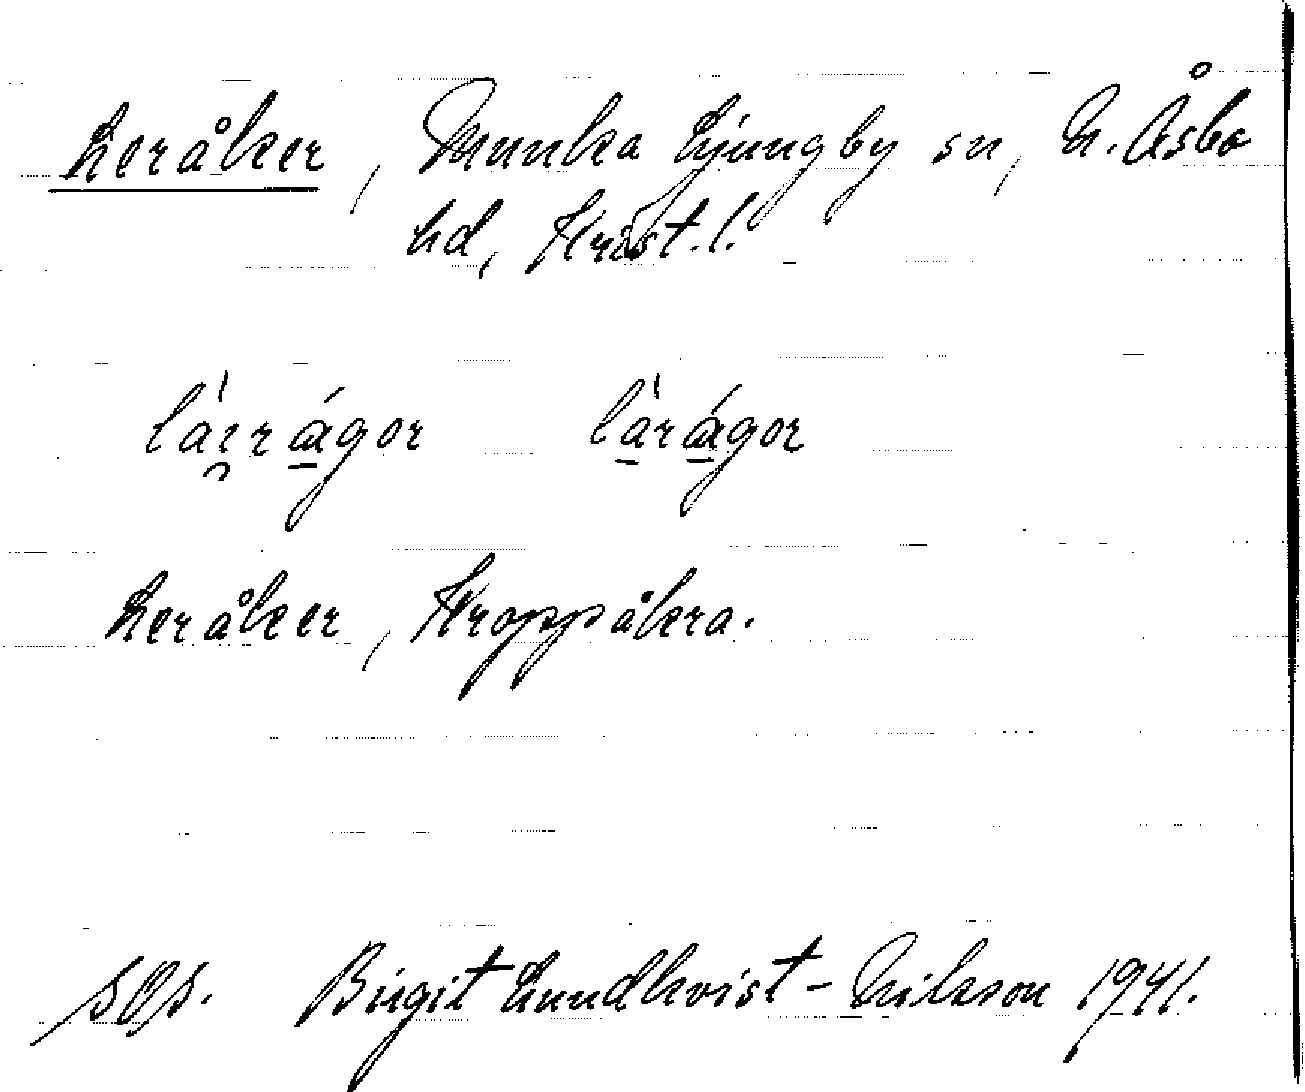 Leråker, Munka Ljungby sn, N. Åsbo
hd, Krist. l.
Leråker, Kroppåkra.
SOS. Birgit Lundkvist-Nilsson 1941.